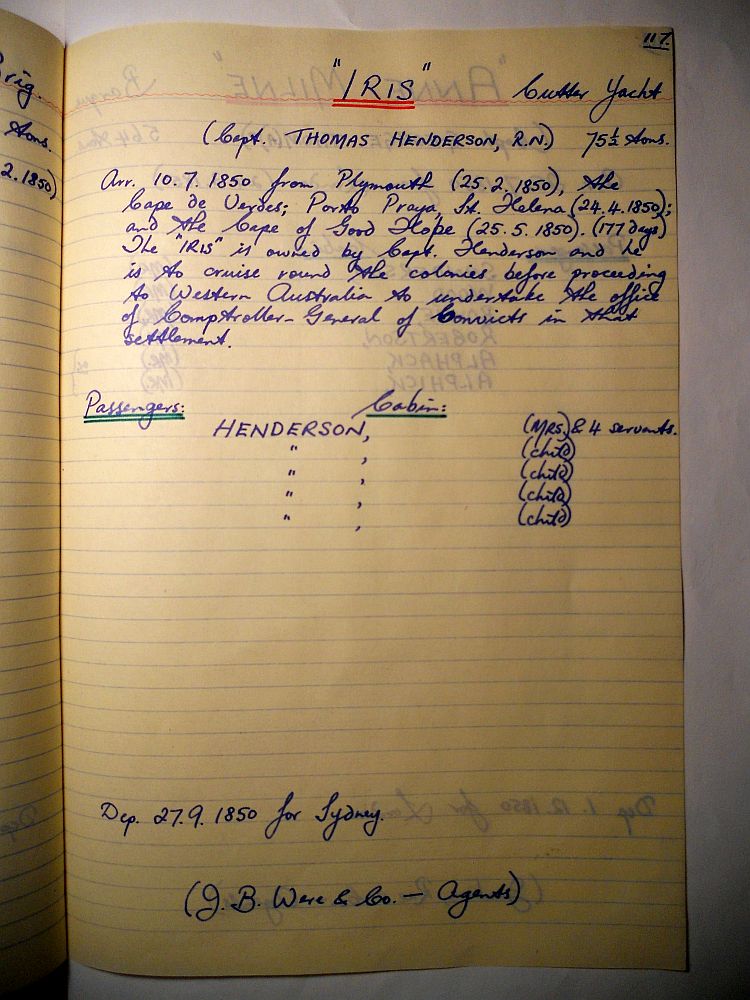 117.
"IRIS" Cutter Yacht
(Capt. THOMAS HENDERSON, R.N.) 75½ tons.
Arr. 10.7.1850 from Plymouth (25.2.1850), the
Cape de Verdes; Porto Praya, St. Helena (24.4.1850);
and the Cape of Good Hope (25.5.1850). (177 days)
The "IRIS" is owned by Capt. Henderson and he
is to cruise round the colonies before proceeding
to Western Australia to undertake the office
of Comptroller-General of Convicts in that
settlement.
Passengers: Cabin:
HENDERSON, (MRS.) & 4 servants.
" , (child)
" , (child)
" , (child)
" , (child)
Dep. 27.9.1850 for Sydney.
(J. B. Were & Co. — Agents)
rig.
tons.
2.1850)